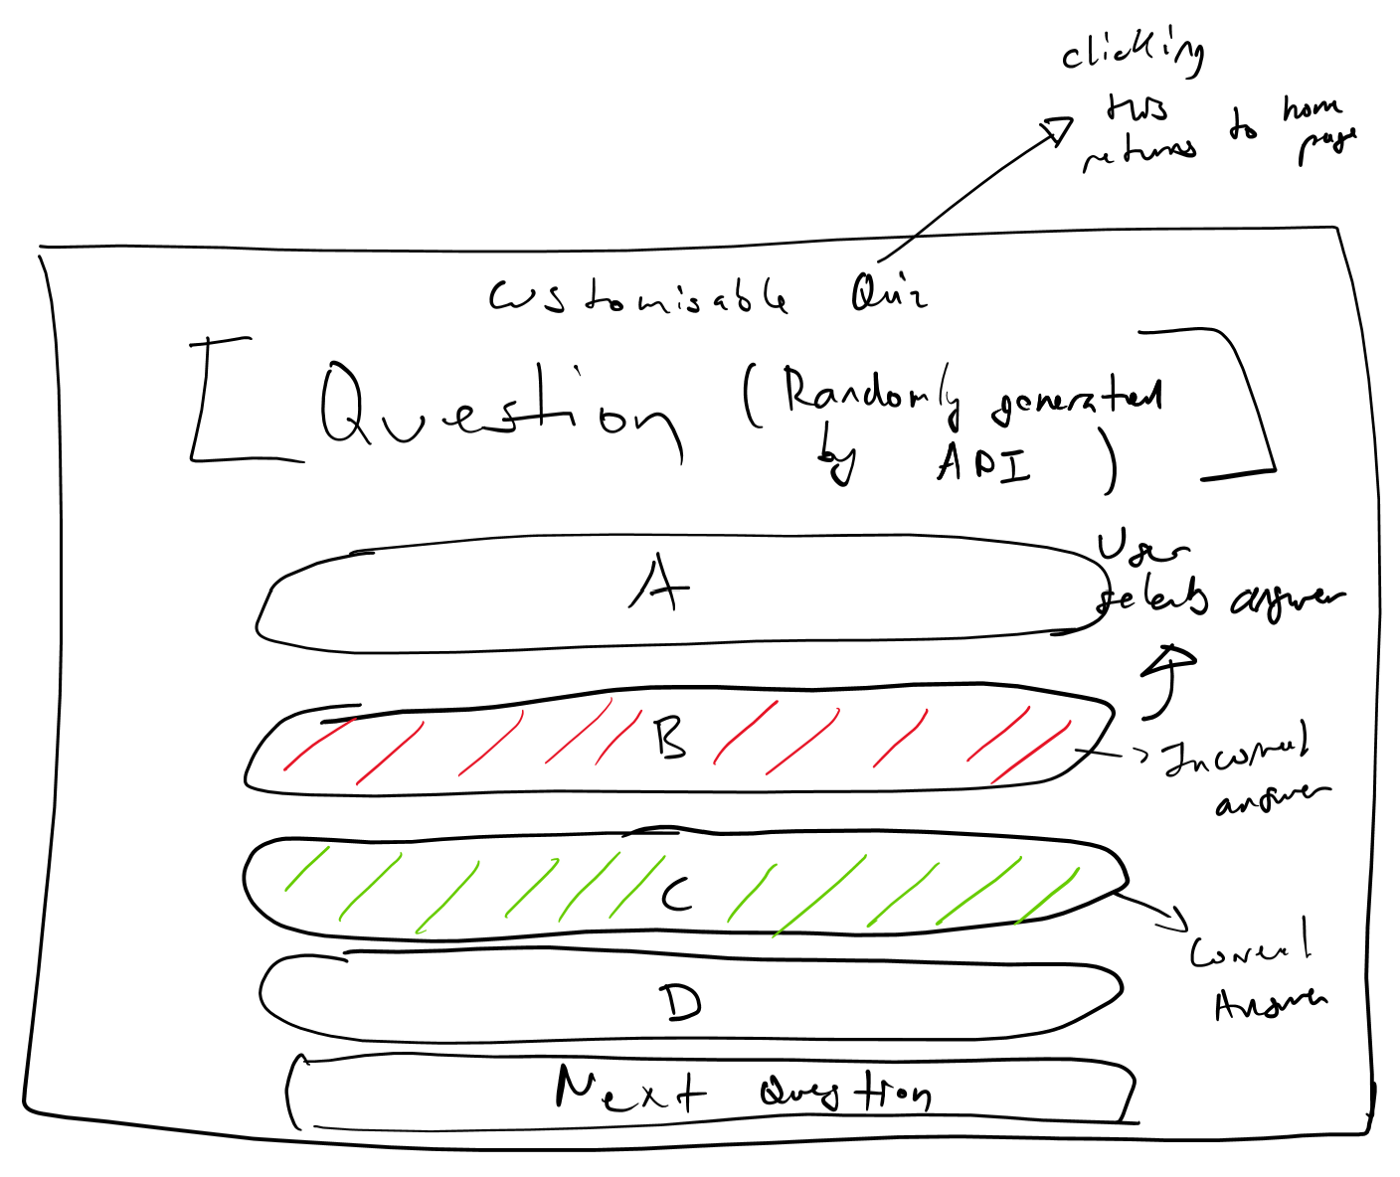 clicking
this
returns to home
page
Customisable Quiz
Question (Randomly generated
by API)
A
User
selects answer
B
Incorrect
answer
C
Correct
Answer
D
Next Question